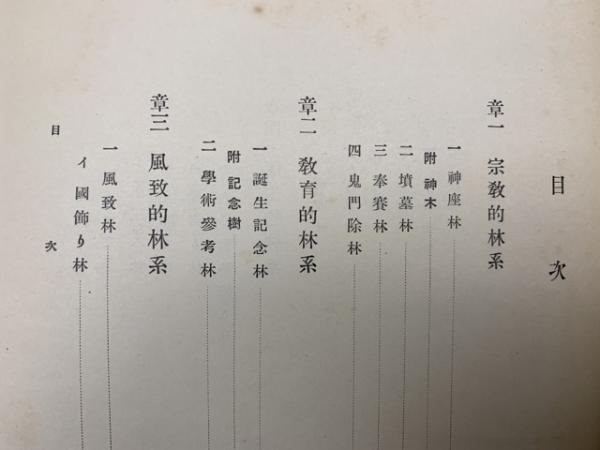 目次
章一 宗教的林系
一 神座林
附 神木
二 墳墓林
三 奉賽林
四 鬼門除林
章二 教育的林系
一 誕生記念林
附 記念樹
二 學術參考林
章三 風致的林系
一 風致林
イ 國飾り林
目次